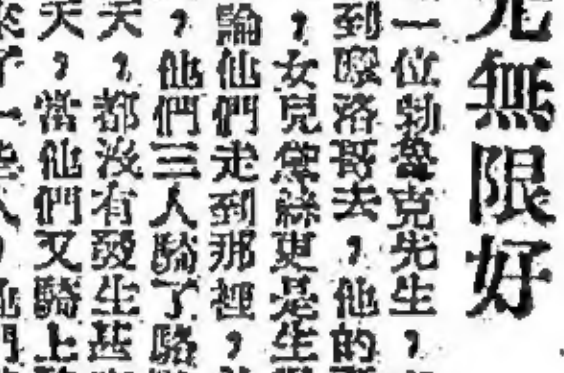 無限好
一位勃魯克先生,
到摩洛哥去,他的
,女兒黛絲更是生
論他們走到那裡,
,他們三人騎了駱
天,都沒有發生些
天,當他們又騎上
了一些人,他們